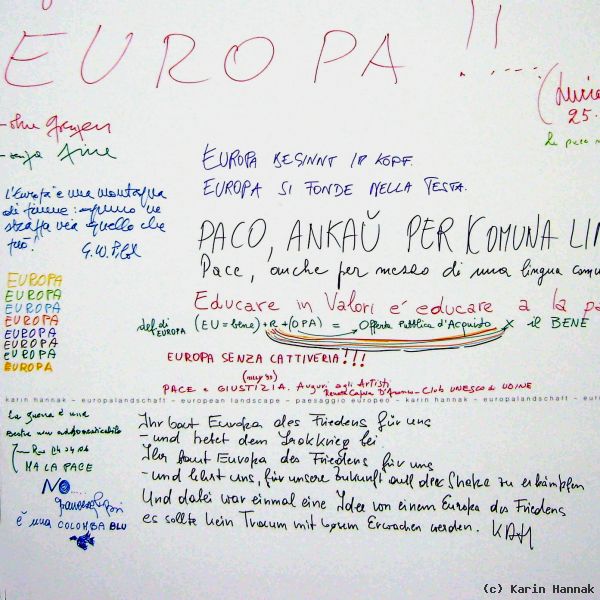 EUROPA !!
25.
- ohne Grenzen
- senza fine
EUROPA BEGINNT IM KOPF.
EUROPA SI FONDE NELLA TESTA.
L'Europa è una montagna
di fiume: ognuno ne
strappa via quello che
può.
PACO, ANKAŬ PER KOMUNA LIN
Pace, anche per mezzo di una lingua comu
EUROPA
EUROPA
EUROPA
EUROPA
EUROPA
EUROPA
EUROPA
EUROPA
Educare in Valori é educare a la pa
del. di EUROPA (EU = bene) + R + (OPA) = Offerta Pubblica d'Acquisto x il BENE
EUROPA SENZA CATTIVERIA!!!
PACE e GIUSTIZIA. Auguri agli Artisti
Club UNESCO di UDINE
karin hannak - europalandschaft - european landscape - paesaggio europeo - karin hannak - europalandschaft - eur
La guerra è una
MA LA PACE
NO....
è una COLOMBA BLU
Ihr baut Europa des Friedens für uns
- und betet dem Irakkrieg bei
Ihr baut Europa des Friedens für uns
- und lehrt uns, für unsere Zukunft auf der Straße zu erkämpfen
Und dabei war einmal eine Idee von einem Europa des Friedens
es sollte kein Traum mit bösem Erwachen werden. KAH
(c) Karin Hannak